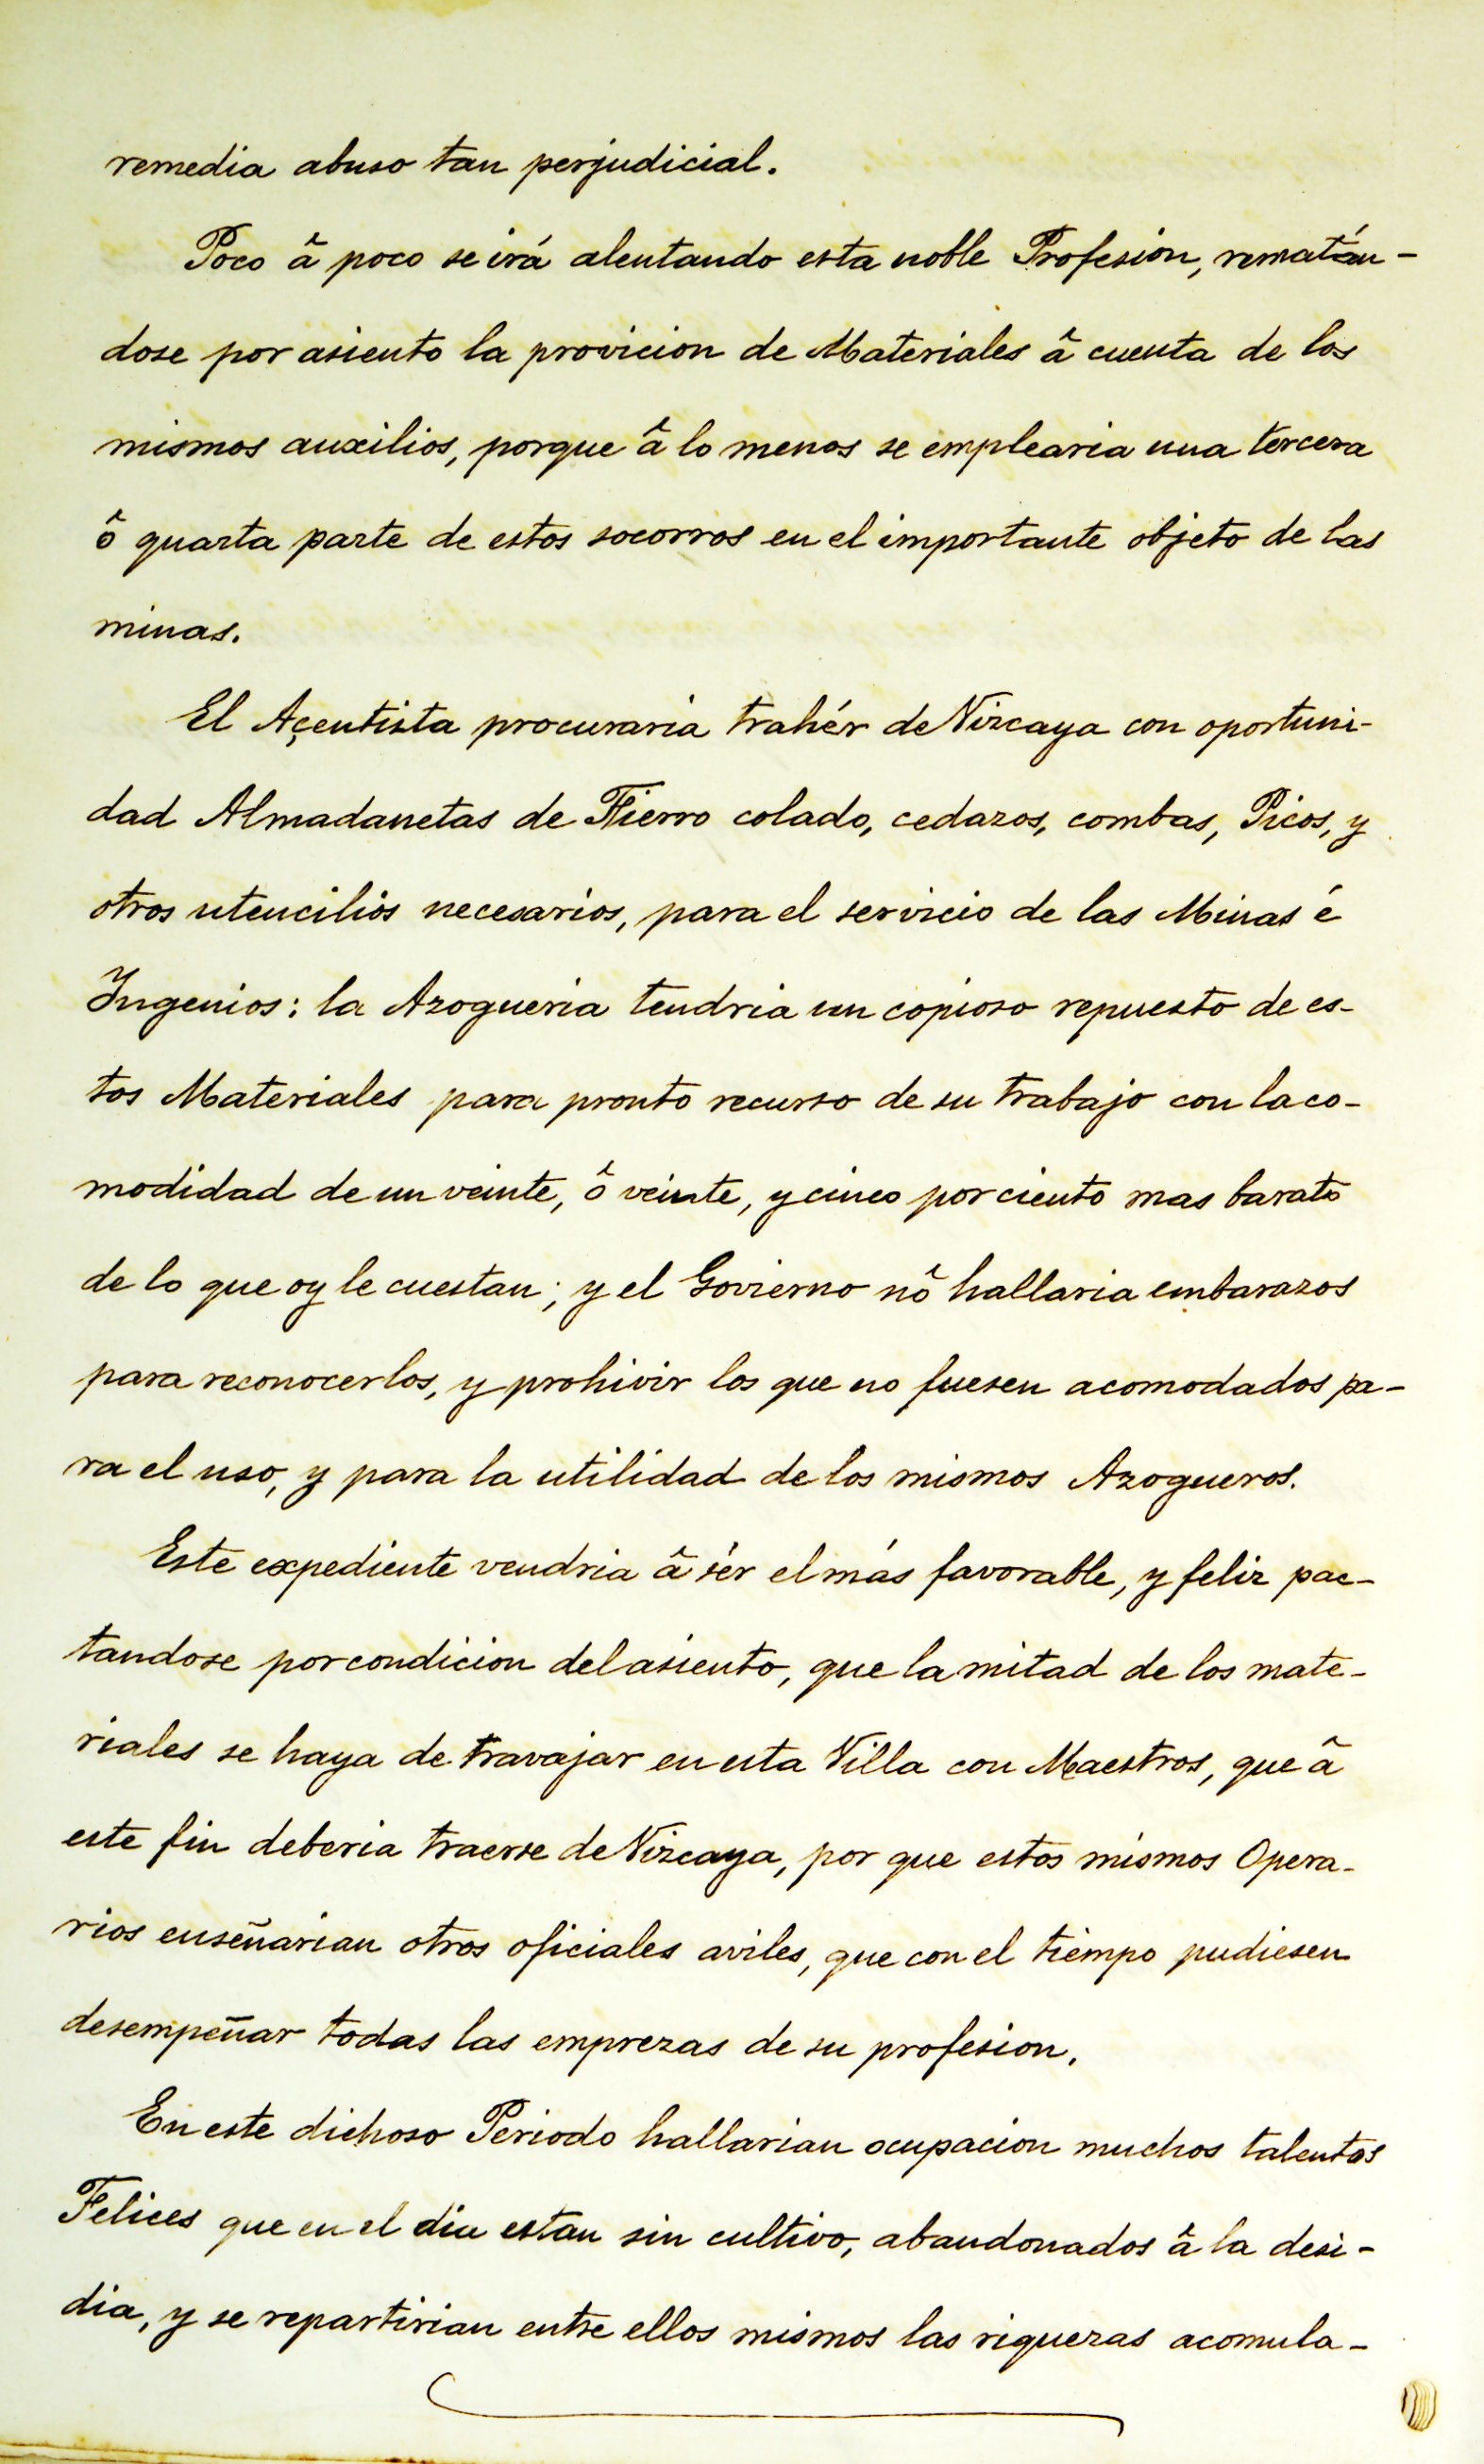 remedia abuso tan perjudicial.
Poco â poco se irá alentando esta noble Profesion, rematán-
dose por asiento la provicion de Materiales â cuenta de los
mismos auxilios, porque â lo menos se emplearia una tercera
ô quarta parte de estos socorros en el importante objeto de las
minas.
El Açentista procuraria trahér de Vizcaya con oportuni-
dad Almadanetas de Fierro colado, cedazos, combas, Picos, y
otros utencilios necesarios, para el servicio de las Minas é
Ingenios: la Azogueria tendria un copioso repuesto de es-
tos Materiales para pronto recurso de su trabajo con la co-
modidad de un veinte, ô veinte, y cinco por ciento mas barato
de lo que oy le cuestan; y el Govierno nô hallaria embarazos
para reconocerlos, y prohivir los que no fuesen acomodados pa-
ra el uso, y para la utilidad de los mismos Azogueros.
Este expediente vendria â sér el más favorable, y feliz pac-
tandose por condicion del asiento, que la mitad de los mate-
riales se haya de travajar en esta Villa con Maestros, que â
este fin deberia traerse de Vizcaya, por que estos mismos Opera-
rios enseñarian otros oficiales aviles, que con el tiempo pudiesen
desempeñar todas las emprezas de su profesion.
En este dichoso Periodo hallarian ocupacion muchos talentos
Felices que en el dia estan sin cultivo, abandonados â la desi-
dia, y se repartirian entre ellos mismos las riquezas acomula-